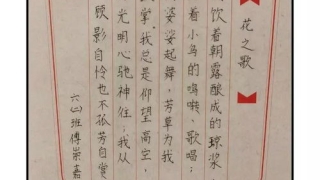 花之歌
饮着朝露酿成的琼浆
着小鸟的鸣啭、歌唱；
婆娑起舞，芳草为我
掌。我总是仰望高空，
光明心驰神往；我从
顾影自怜也不孤芳自赏
六(二)班傅崇嘉